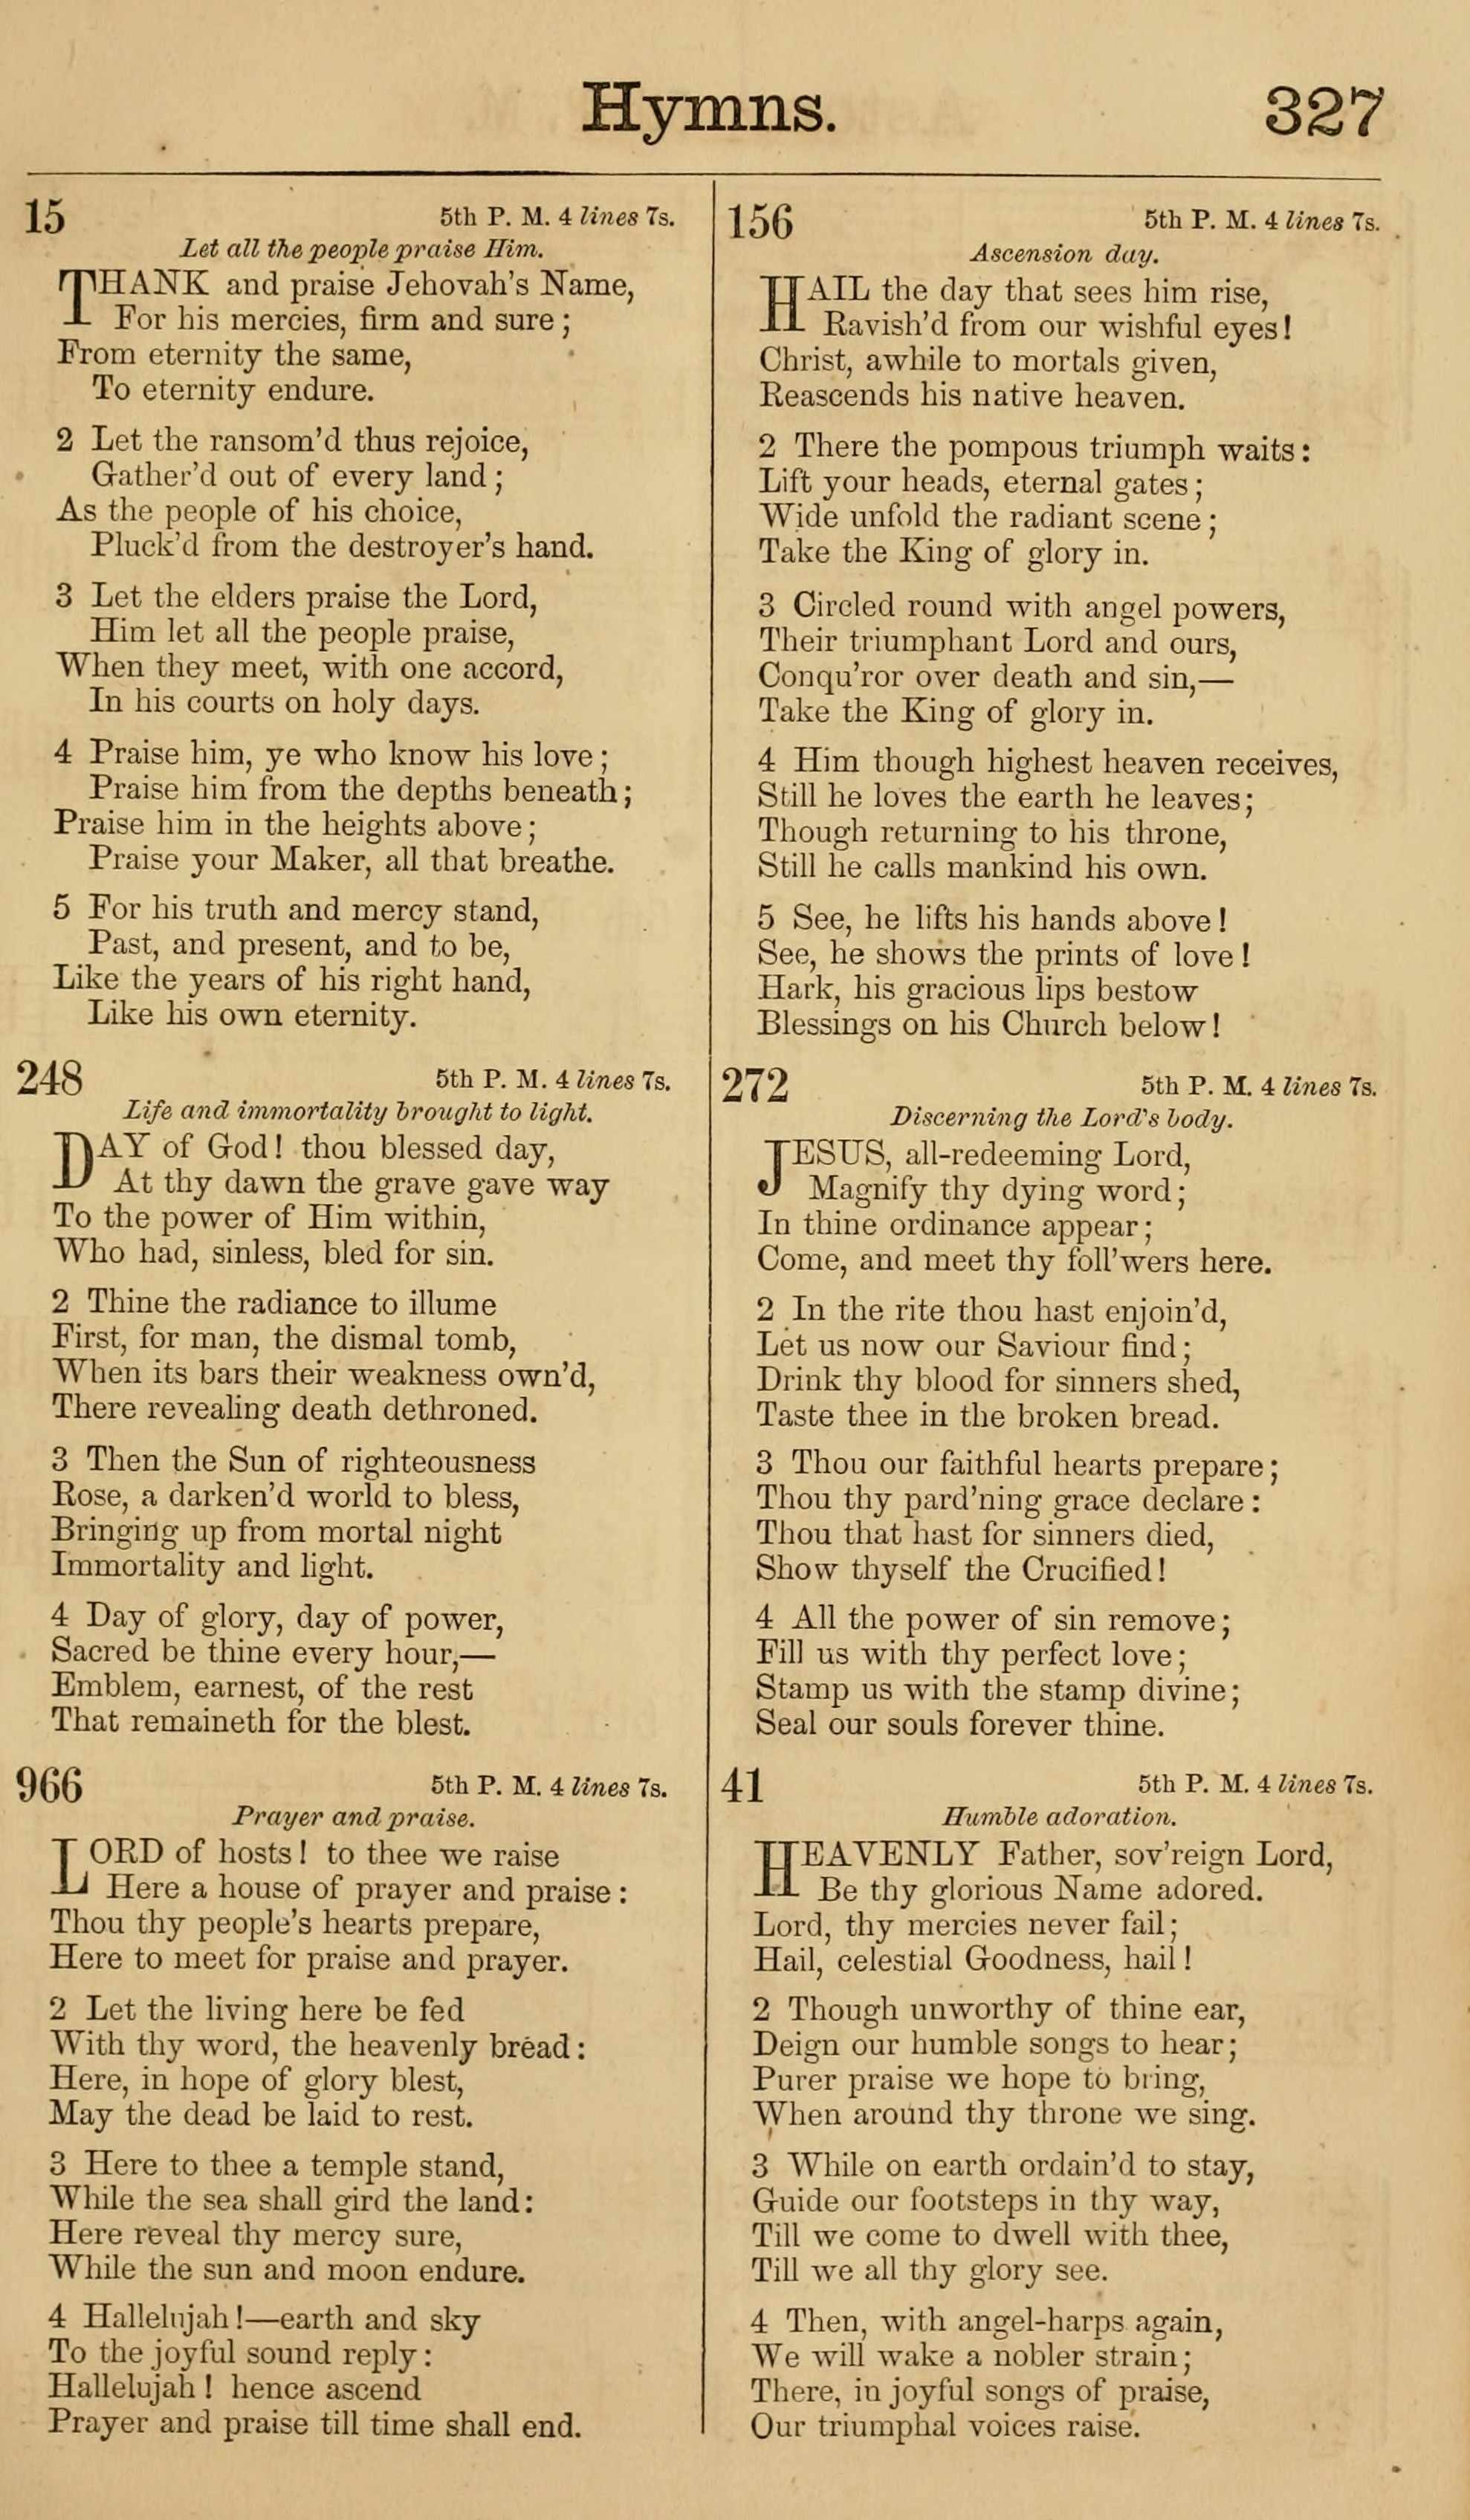 Hymns. 327
15 5th P. M. 4 lines 7s.
Let all the people praise Him.
THANK and praise Jehovah's Name,
For his mercies, firm and sure;
From eternity the same,
To eternity endure.
2 Let the ransom'd thus rejoice,
Gather'd out of every land;
As the people of his choice,
Pluck'd from the destroyer's hand.
3 Let the elders praise the Lord,
Him let all the people praise,
When they meet, with one accord,
In his courts on holy days.
4 Praise him, ye who know his love;
Praise him from the depths beneath;
Praise him in the heights above;
Praise your Maker, all that breathe.
5 For his truth and mercy stand,
Past, and present, and to be,
Like the years of his right hand,
Like his own eternity.
248 5th P. M. 4 lines 7s.
Life and immortality brought to light.
DAY of God! thou blessed day,
At thy dawn the grave gave way
To the power of Him within,
Who had, sinless, bled for sin.
2 Thine the radiance to illume
First, for man, the dismal tomb,
When its bars their weakness own'd,
There revealing death dethroned.
3 Then the Sun of righteousness
Rose, a darken'd world to bless,
Bringing up from mortal night
Immortality and light.
4 Day of glory, day of power,
Sacred be thine every hour,—
Emblem, earnest, of the rest
That remaineth for the blest.
966 5th P. M. 4 lines 7s.
Prayer and praise.
LORD of hosts! to thee we raise
Here a house of prayer and praise:
Thou thy people's hearts prepare,
Here to meet for praise and prayer.
2 Let the living here be fed
With thy word, the heavenly bread:
Here, in hope of glory blest,
May the dead be laid to rest.
3 Here to thee a temple stand,
While the sea shall gird the land:
Here reveal thy mercy sure,
While the sun and moon endure.
4 Hallelujah!—earth and sky
To the joyful sound reply:
Hallelujah! hence ascend
Prayer and praise till time shall end.
156 5th P. M. 4 lines 7s.
Ascension day.
HAIL the day that sees him rise,
Ravish'd from our wishful eyes!
Christ, awhile to mortals given,
Reascends his native heaven.
2 There the pompous triumph waits:
Lift your heads, eternal gates;
Wide unfold the radiant scene;
Take the King of glory in.
3 Circled round with angel powers,
Their triumphant Lord and ours,
Conqu'ror over death and sin,—
Take the King of glory in.
4 Him though highest heaven receives,
Still he loves the earth he leaves;
Though returning to his throne,
Still he calls mankind his own.
5 See, he lifts his hands above!
See, he shows the prints of love!
Hark, his gracious lips bestow
Blessings on his Church below!
272 5th P. M. 4 lines 7s.
Discerning the Lord's body.
JESUS, all-redeeming Lord,
Magnify thy dying word;
In thine ordinance appear;
Come, and meet thy foll'wers here.
2 In the rite thou hast enjoin'd,
Let us now our Saviour find;
Drink thy blood for sinners shed,
Taste thee in the broken bread.
3 Thou our faithful hearts prepare;
Thou thy pard'ning grace declare:
Thou that hast for sinners died,
Show thyself the Crucified!
4 All the power of sin remove;
Fill us with thy perfect love;
Stamp us with the stamp divine;
Seal our souls forever thine.
41 5th P. M. 4 lines 7s.
Humble adoration.
HEAVENLY Father, sov'reign Lord,
Be thy glorious Name adored.
Lord, thy mercies never fail;
Hail, celestial Goodness, hail!
2 Though unworthy of thine ear,
Deign our humble songs to hear;
Purer praise we hope to bring,
When around thy throne we sing.
3 While on earth ordain'd to stay,
Guide our footsteps in thy way,
Till we come to dwell with thee,
Till we all thy glory see.
4 Then, with angel-harps again,
We will wake a nobler strain;
There, in joyful songs of praise,
Our triumphal voices raise.